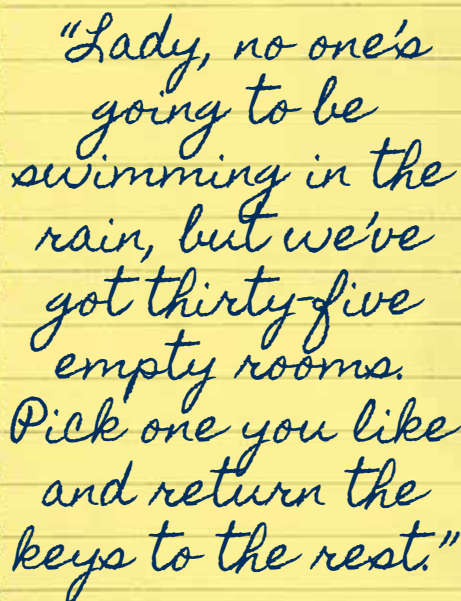 "Lady, no one's
going to be
swimming in the
rain, but we've
got thirty-five
empty rooms.
Pick one you like
and return the
keys to the rest."